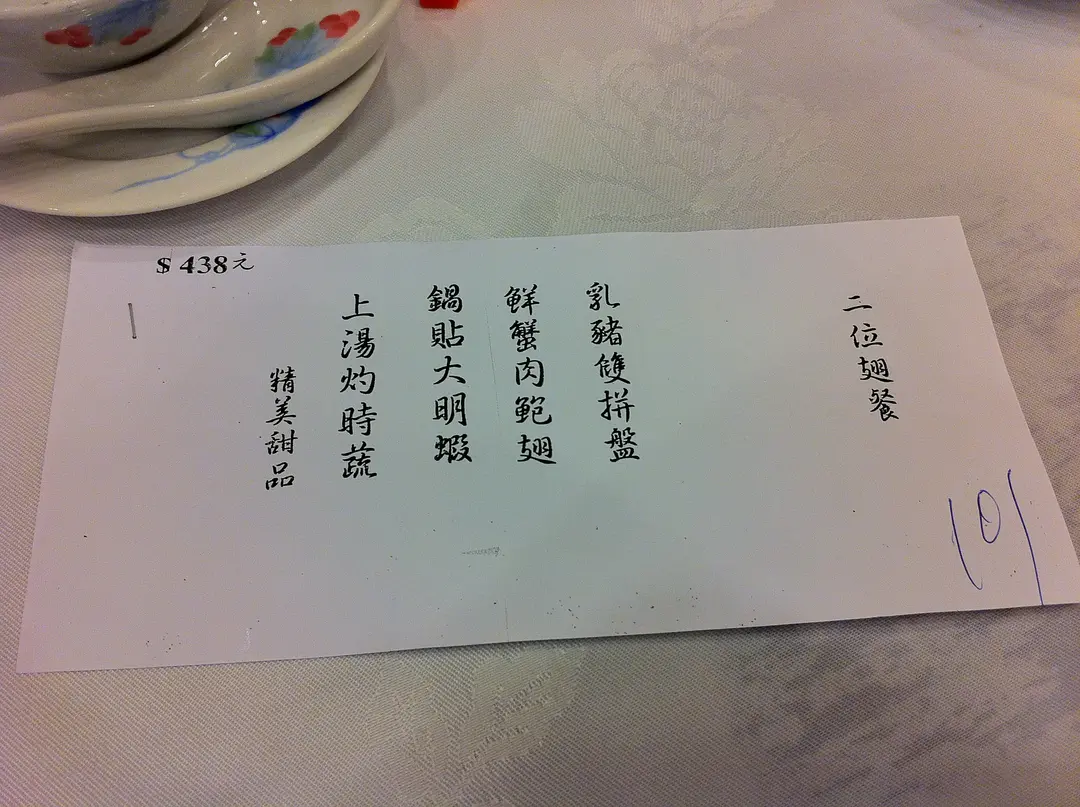 二位翅餐
乳豬雙拼盤
鮮蟹肉鮑翅
鍋貼大明蝦
上湯灼時蔬
精美甜品
$ 438元
101